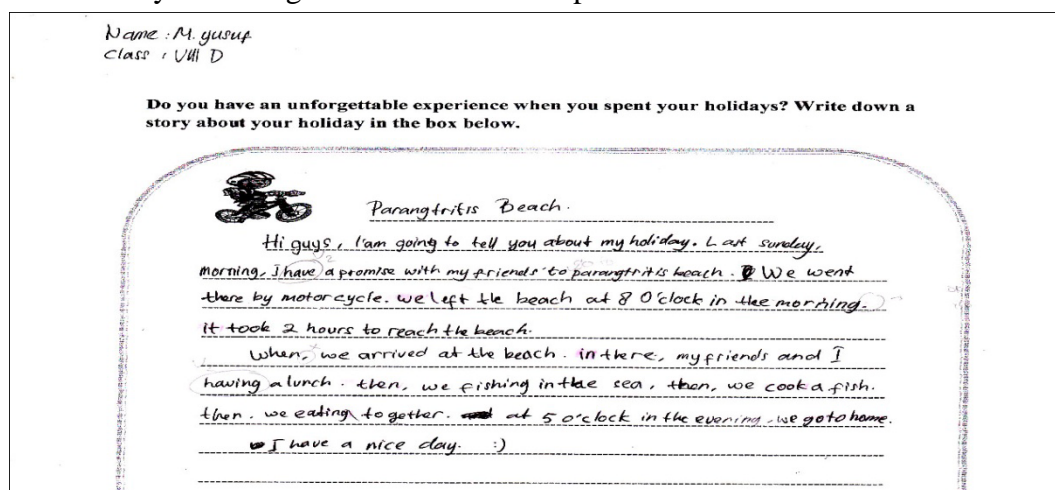 Name : M. yusuf
Class : VIII D
Do you have an unforgettable experience when you spent your holidays? Write down a
story about your holiday in the box below.
Parangtritis Beach.
Hi guys, I'am going to tell you about my holiday. Last sunday,
morning, I have a promise with my friends to parangtritis beach. We went
there by motorcycle. we left the beach at 8 O'clock in the morning.
it took 2 hours to reach the beach.
When, we arrived at the beach. in there, my friends and I
having a lunch. then, we fishing in the sea, then, we cook a fish.
then. we eating together. at 5 o'clock in the evening, we go to home.
I have a nice day. :)